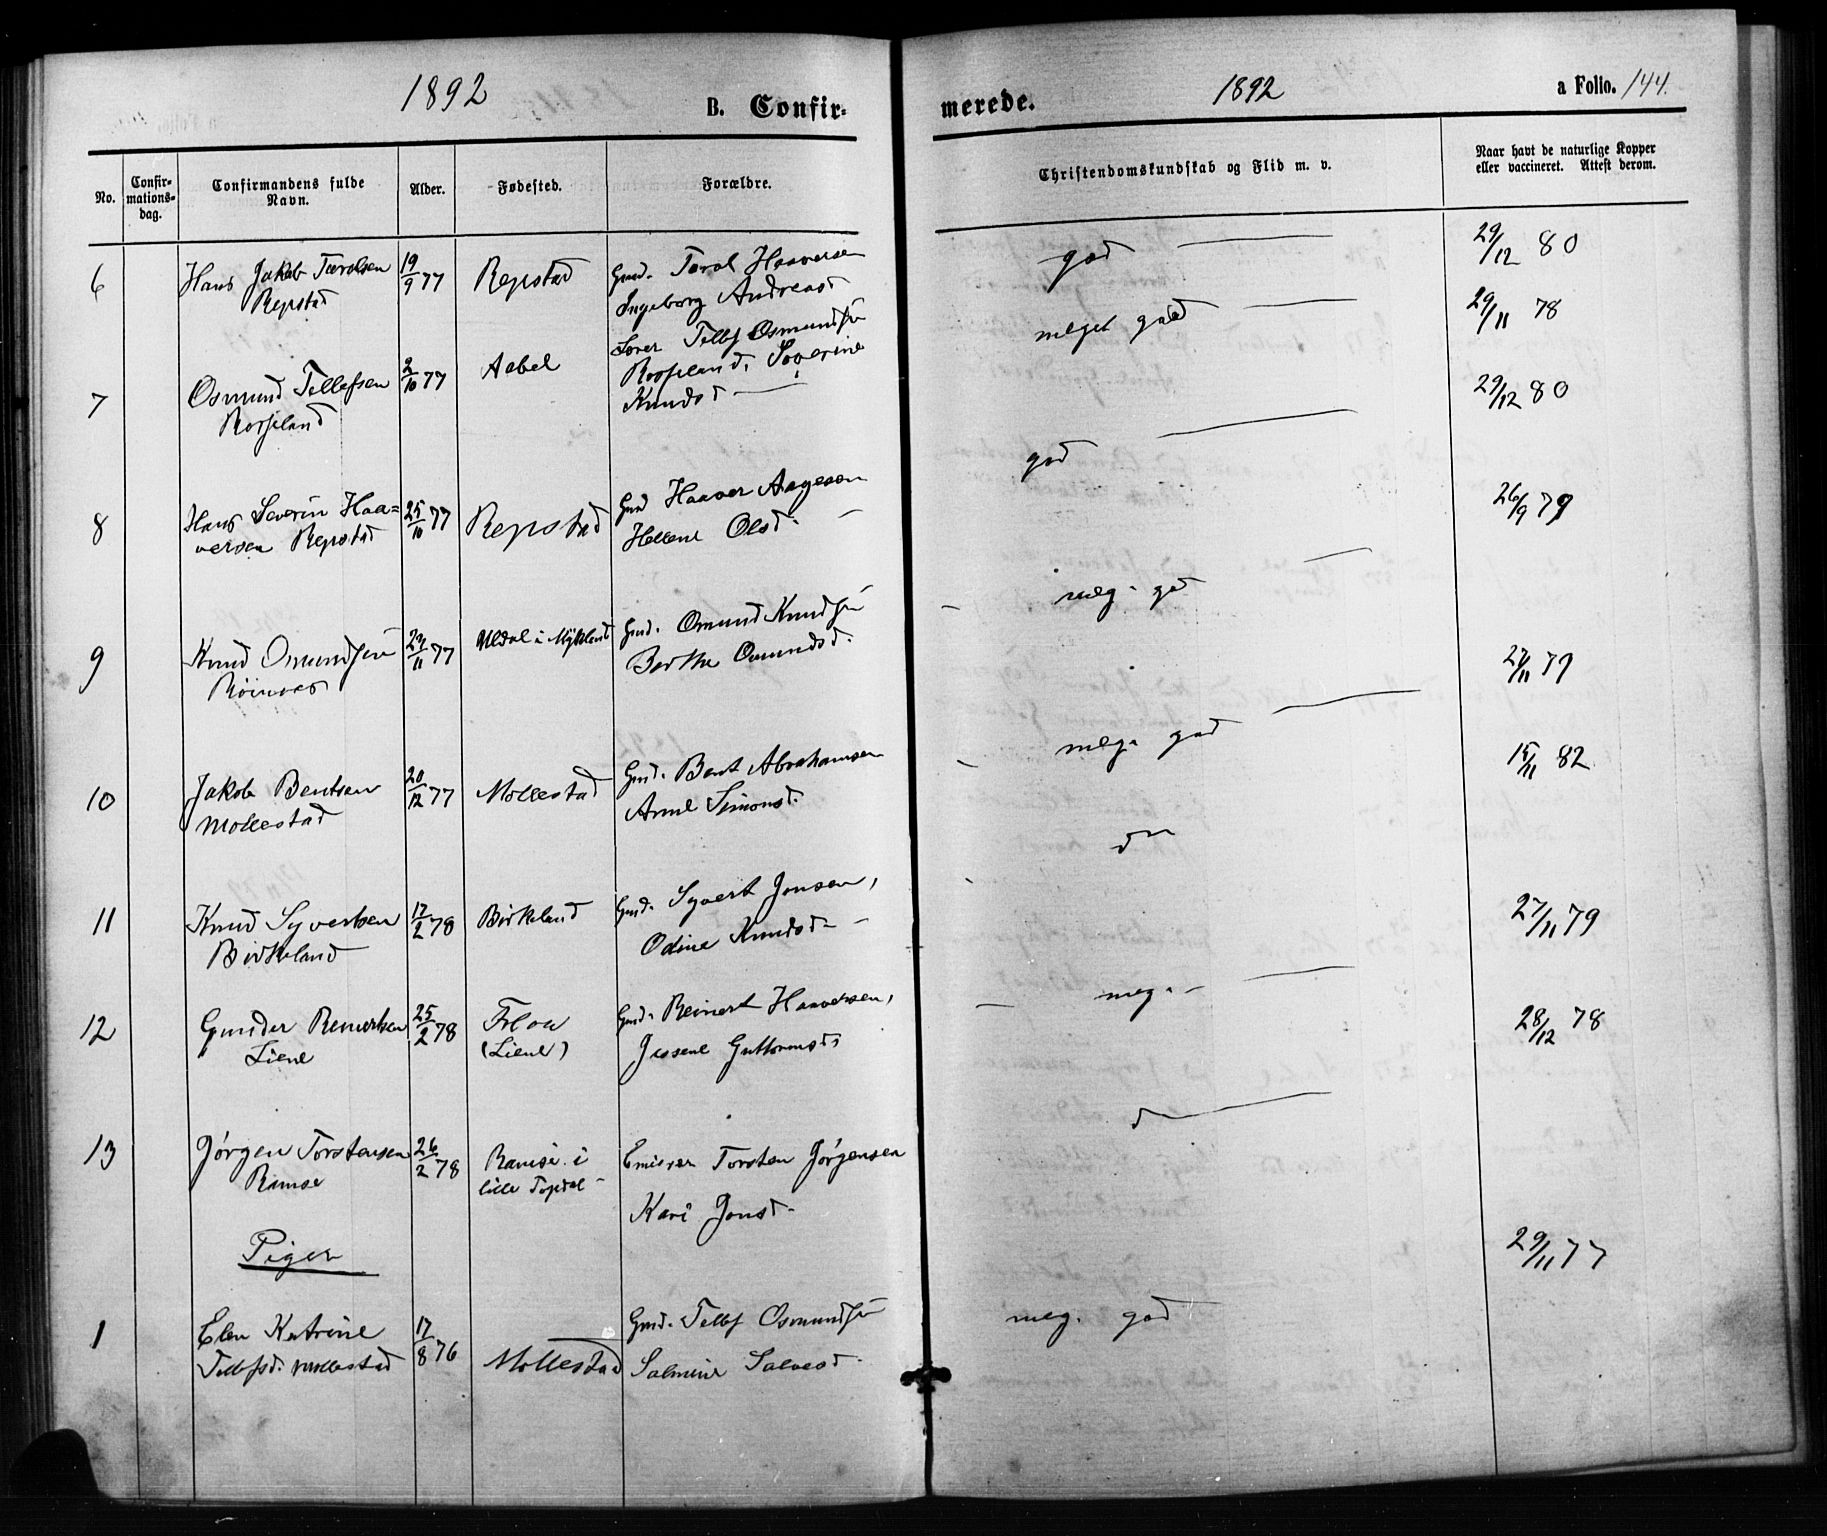 1892
B. Confir-
merede.
1892
a Folio. 144.
No.
Confir-
mations-
dag.
Confirmandens fulde
Navn.
Alder.
Fødested.
Forældre.
Christendomskundskab og Flid m. v.
Naar havt de naturlige Kopper
eller vaccineret. Attest derom.
6
Hans Jakob Tarolsen
Repstad
19/9 77
Repstad
Gmd. Tarol Haaversen
Ingeborg Andreasd
god
29/12 80
7
Osmund Tellefsen
Rosseland
2/10 77
Aabel
Tellef Osmundsen
Rosseland, Severine
Knudsd
meget god
29/11 78
8
Hans Severin Haa=
versen Repstad
25/10 77
Repstad
Gmd Haaver Aagesen
Hellene Olsd.
god
29/12 80
9
Knud Osmundsen
23/11 77
Uldal i Mykland
Gmd. Osmund Knudsen
Berthe Osmundsd.
meg. god
26/9 79
10
Jakob Bentsen
Mollestad
20/12 77
Mollestad
Gmd. Bent Abrahamsen
Anne Simonsd.
meg. god
27/11 79
11
Knud Syvertsen
Birkeland
17/2 78
Birkeland
Gmd. Syvert Jonsen,
Odine Knudsd
do
15/11 82
12
Gunder Reinertsen
Liene
25/2 78
(Liene)
Gmd. Reinert Haaversen,
Jessene Guttormsd.
meg. -
27/11 79
13
Jørgen Torstensen
Ramse
26/2 78
Ramse i
lille Topdal
Torsten Jørgensen
Kari Jonsd.
d
28/12 78
Piger
1
Elen Katrine
Tellefsd. Mollestad
17/8 76
Mollestad
Gmd. Tellef Osmundsen
Salmine Salvesd.
meg. god
29/11 77